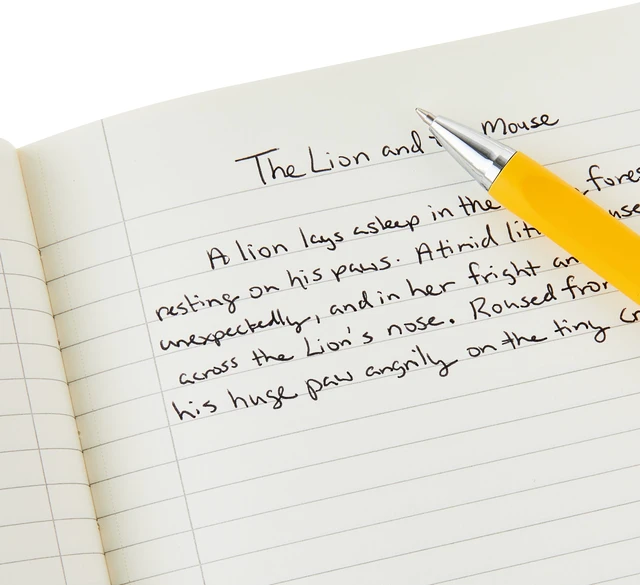 The Lion and Mouse
A lion lays asleep in the fores
resting on his paws. A timid lit use
unexpectedly, and in her fright an
across the Lion's nose. Roused fro
his huge paw angrily on the tiny cr